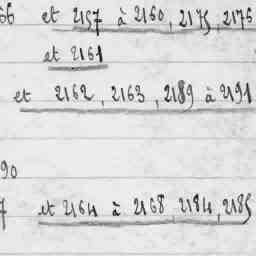 66 et 2157 à 2160, 2175, 2176
et 2161
et 2162, 2163, 2189 à 2191
90
7 et 2164 à 2168, 2184, 2185